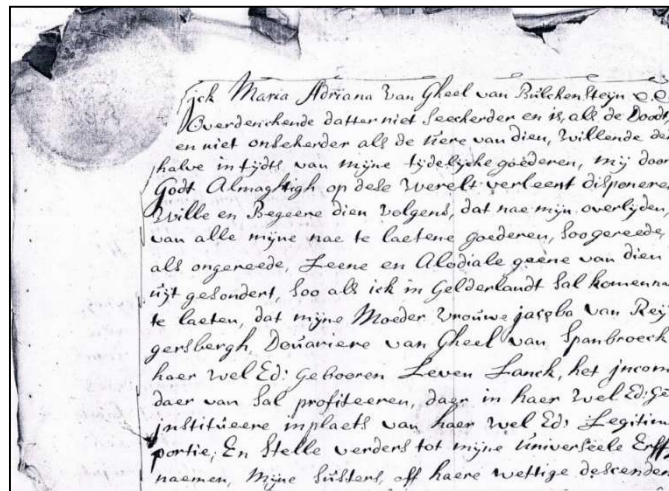 jck Maria Adriana Van Gheel van Bulckensteijn &.&.
Overdenckende datter niet seeckerder en is, als de Doodt,
en niet onsekerder als de uere van dien, willende des
halve in tijdts van mijne tijdelijcke goederen, mij door
Godt Almaghtigh op dese Werelt verleent disponeren
Wille en Begeere dien volgens, dat nae mijn overlijden,
van alle mijne nae te laetene goederen, soo gereede,
als ongereede, Leene en Alodiale geene van dien
uijt gesondert, soo als ick in Gelderlandt sal komen na
te laeten, dat mijne Moeder Vrouwe jacoba van Reij
gersbergh, Douariere van Gheel van Spanbroeck
haer wel Ed: Geboeren Leven Lanck, het jncom
daer van sal profiteeren, daer in haer wel Ed: Ge
jnstitueere inplaets van haer wel Ed: Legitime
portie; En stelle verders tot mijne Universeele Erff
naemen, mijne susters, off haere wettige descenden